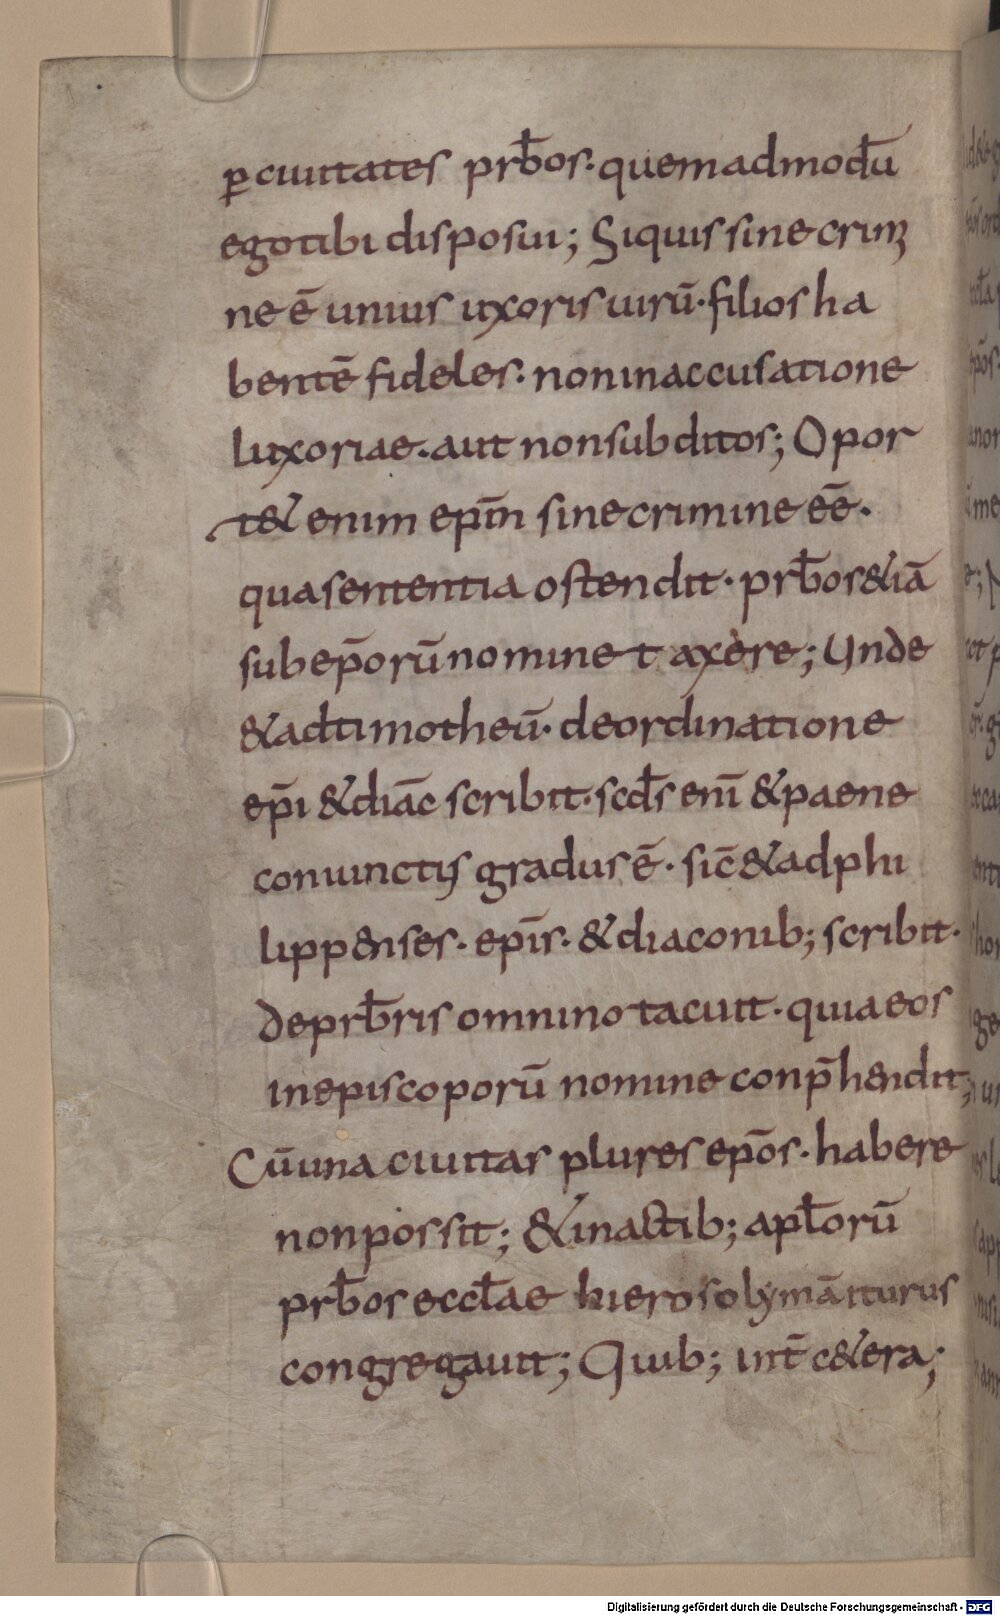 ꝑ ciuitates prb̄os· quemadmodū
ego tibi disposui; Siquis sinecrimi
ne ē unius uxoris uirū· filios ha
bentē fideles· noninaccusatione
luxoriae· aut nonsubditos; Opor
t& enim ep̄m sinecrimine eē·
quasententia ostendit· prb̄os&iā
subep̄orū nomine taxere; Unde
&adtimotheū· deordinatione
ep̄i &diāc scribit· scd̄s enī &paene
coniunctis gradus ē· sic̄&adphi
lippenses· ep̄is· &diaconib; scribit·
deprb̄ris omnino tacuit· quiaeos
inepiscoporū nomine conp̄hendit;
Cūuna ciuitas plures ep̄os· habere
nonpossit; &inactib; apl̄orū
prb̄os eccl̄ae hierosolymā iturus
congregauit; Quib; int̄ c&era;
Digitalisierung gefördert durch die Deutsche Forschungsgemeinschaft - DFG